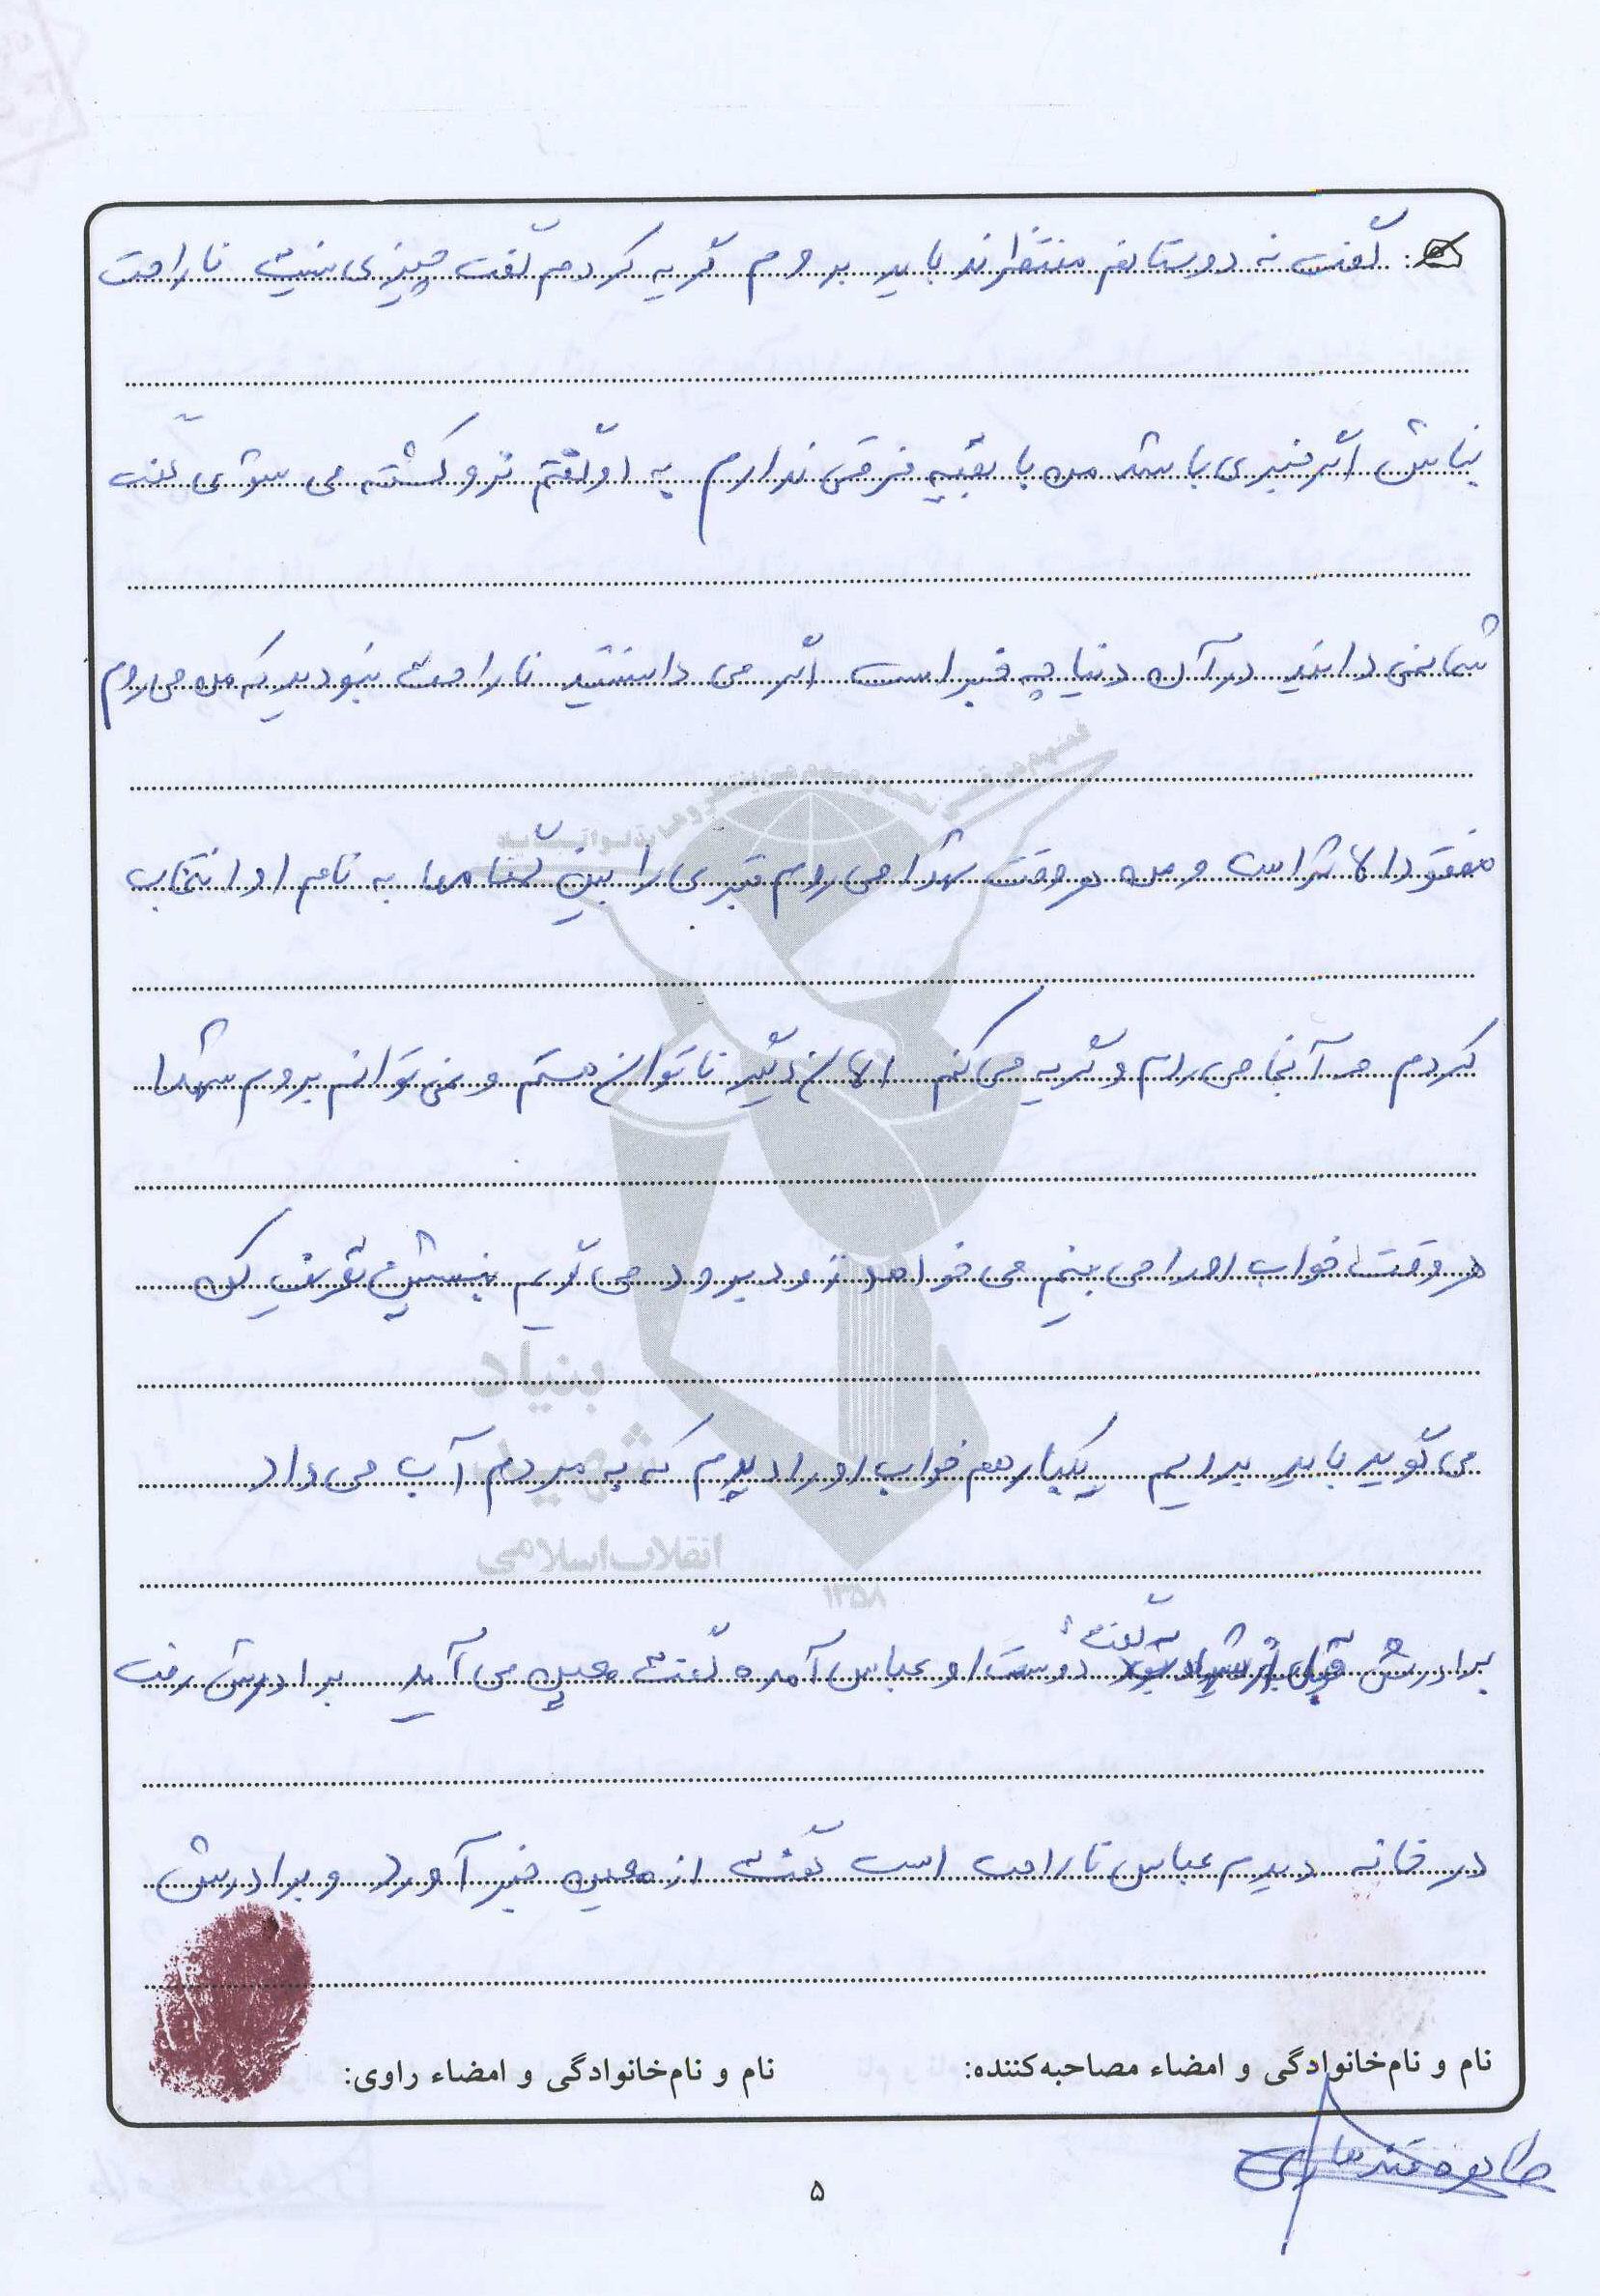 گفت نه دوستانم منتظرند باید بروم گریه کردم گفت چیزی نیست ناراحت
نباش اگر خبری باشد من با بقیه فرقی ندارم به او گفتم نرو کشته می شوی گفت
شما نمی دانید در آن دنیا چه خبر است اگر می دانستید ناراحت نبودید که من می روم
مفقودالاثر است و من هر وقت شهدا می روم قبری را بین گمنامها به نام او انتخاب
کردم و آنجا می روم و گریه می کنم الان دیگر ناتوان هستم و نمی توانم بروم شهدا
هر وقت خواب او را می بینم می خواهد زود برود می گویم بنشین تعریف کن
می گوید باید برویم یکبار هم خواب او را دیدم که به مردم آب می داد
برادرش به گفت دوست او عباس آمده گفت می آید برادرش رفت
در خانه دیدم عباس ناراحت است گفت از خبر آورد و برادرش
نام و نام‌خانوادگی و امضاء مصاحبه‌کننده:
نام و نام‌خانوادگی و امضاء راوی:
۵
بنیاد
شهید
انقلاب اسلامی
۱۳۵۸